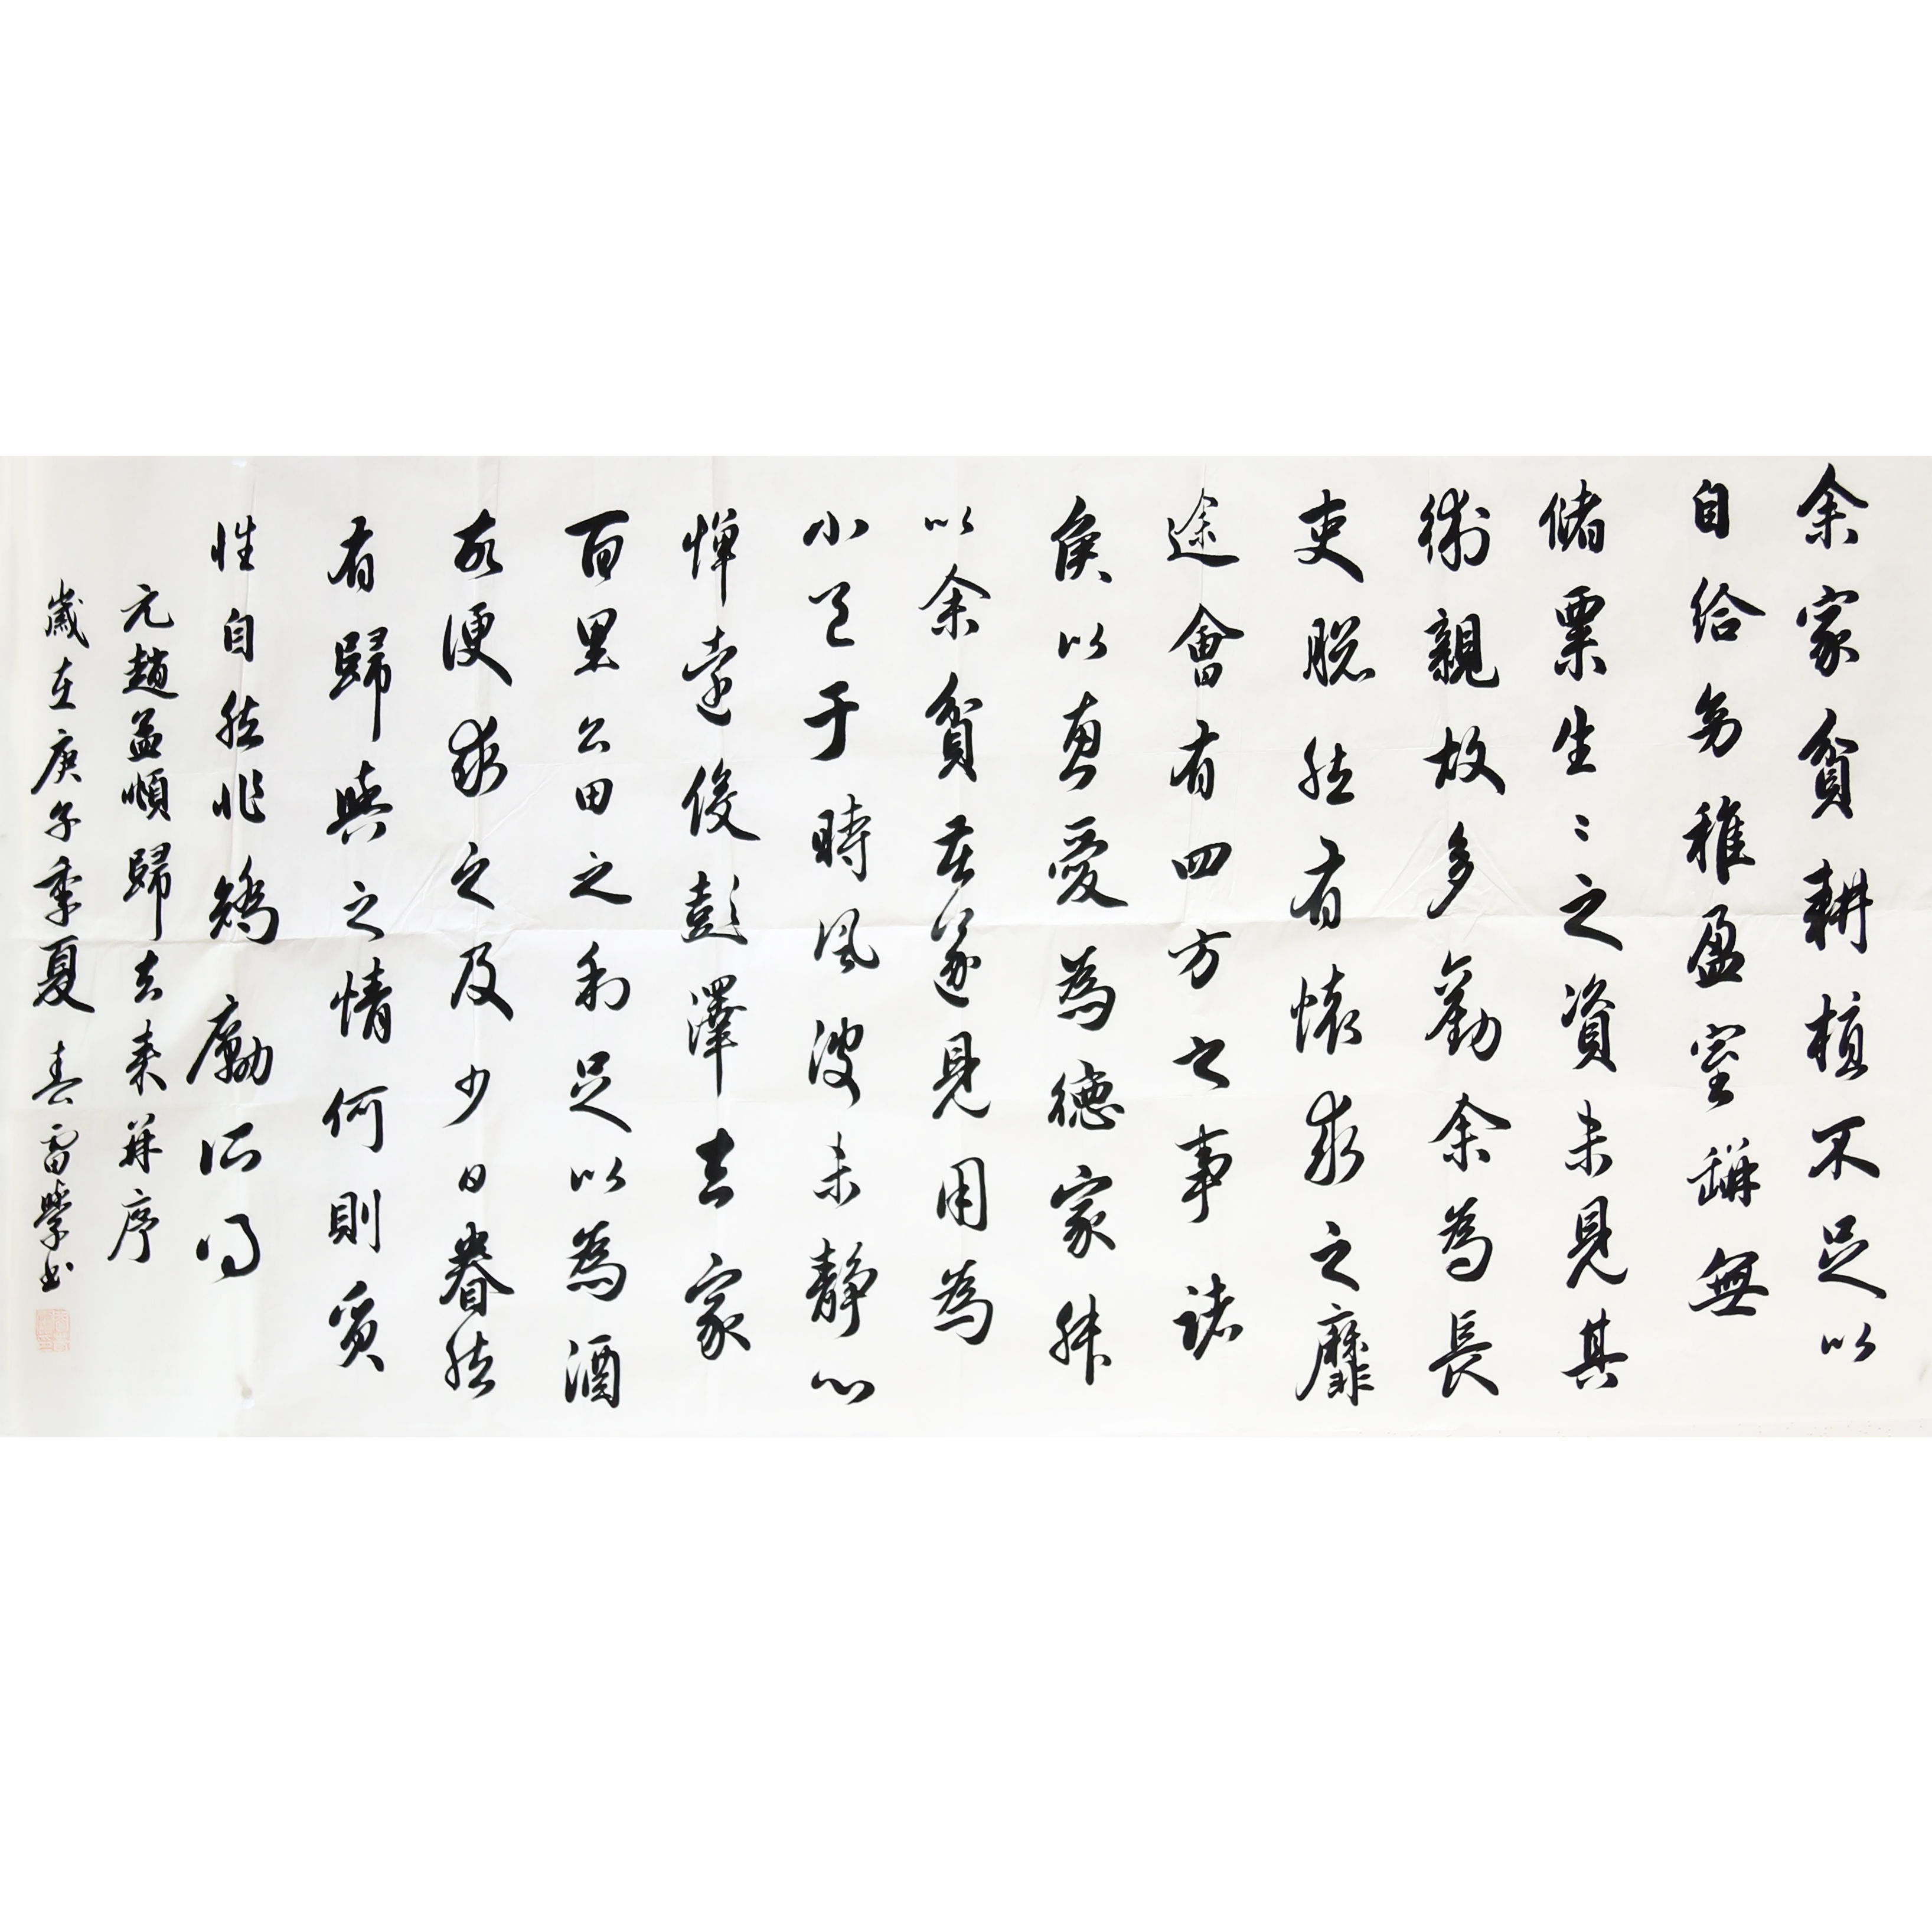 余家貧耕植不足以
自給幼稚盈室缾無
儲粟生〻之資未見其
術親故多勸余為長
吏脱然有懷求之靡
途會有四方之事諸
侯以惠愛為德家叔
以余貧苦遂見用為
小邑于時風波未靜心
憚遠役彭澤去家
百里公田之利足以為酒
故便求之及少日眷然
有歸與之情何則質
性自然非矯勵所得
元趙孟順歸去來并序
歲在庚子季夏 春雷學书